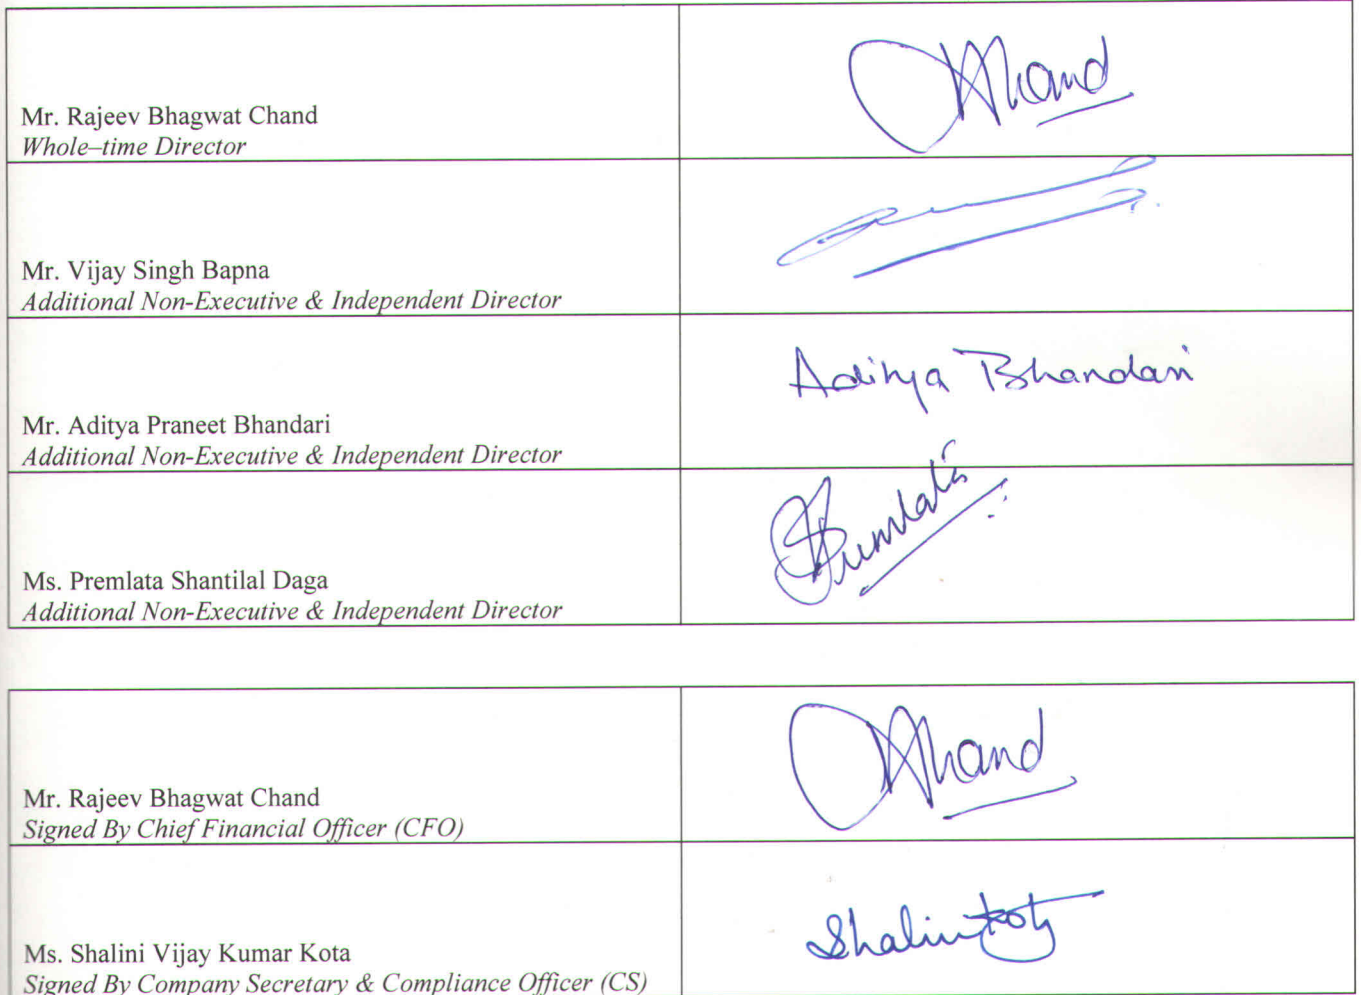 Mr. Rajeev Bhagwat Chand
Whole–time Director
Mr. Vijay Singh Bapna
Additional Non-Executive & Independent Director
Aditya Bhandari
Mr. Aditya Praneet Bhandari
Additional Non-Executive & Independent Director
Ms. Premlata Shantilal Daga
Additional Non-Executive & Independent Director
Mr. Rajeev Bhagwat Chand
Signed By Chief Financial Officer (CFO)
Shalini Kota
Ms. Shalini Vijay Kumar Kota
Signed By Company Secretary & Compliance Officer (CS)